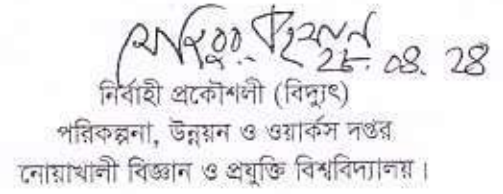 ২৮. ০৪. ২৪
নির্বাহী প্রকৌশলী (বিদ্যুৎ)
পরিকল্পনা, উন্নয়ন ও ওয়ার্কস দপ্তর
নোয়াখালী বিজ্ঞান ও প্রযুক্তি বিশ্ববিদ্যালয়।